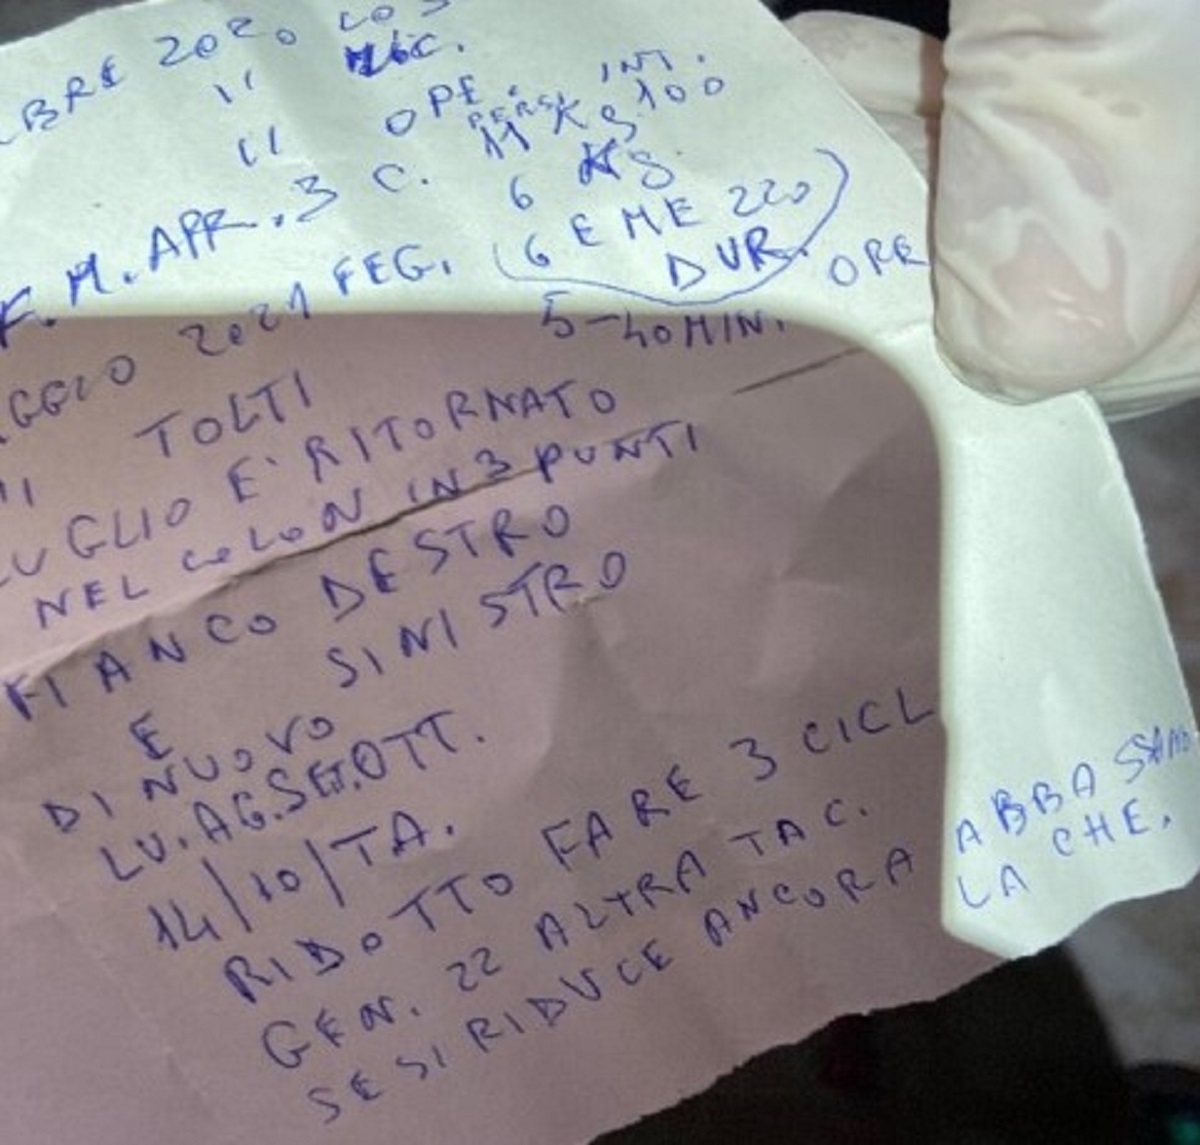 BRE 2020 LO
" C.
" OPE. INT.
PERS. 11 KS 100
F. M. APR. 3 C. 6 KS
2021 FEG. (6 EME 220)
DUR. ORE
5-40 MIN.
GGIO
TOLTI
UGLIO E' RITORNATO
NEL COLON IN 3 PUNTI
FIANCO DESTRO
E SINISTRO
DI NUOVO
LU.AG.SET.OTT.
14/10/TA.
RIDOTTO FARE 3 CICL
GEN. 22 ALTRA TAC.
SE SI RIDUCE ANCORA
ABBASSANO
LA CHE.